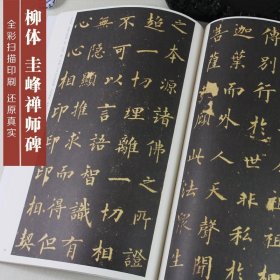 柳体 圭峰禅师碑
全彩扫描印刷 还原真实
傳別行於世非私
迦葉而外人天聲聞
菩薩也
之本源諸佛之所證
超一切理離一切相
不可以言語智識有
無隱顯推求而得但
心心相印印印相契